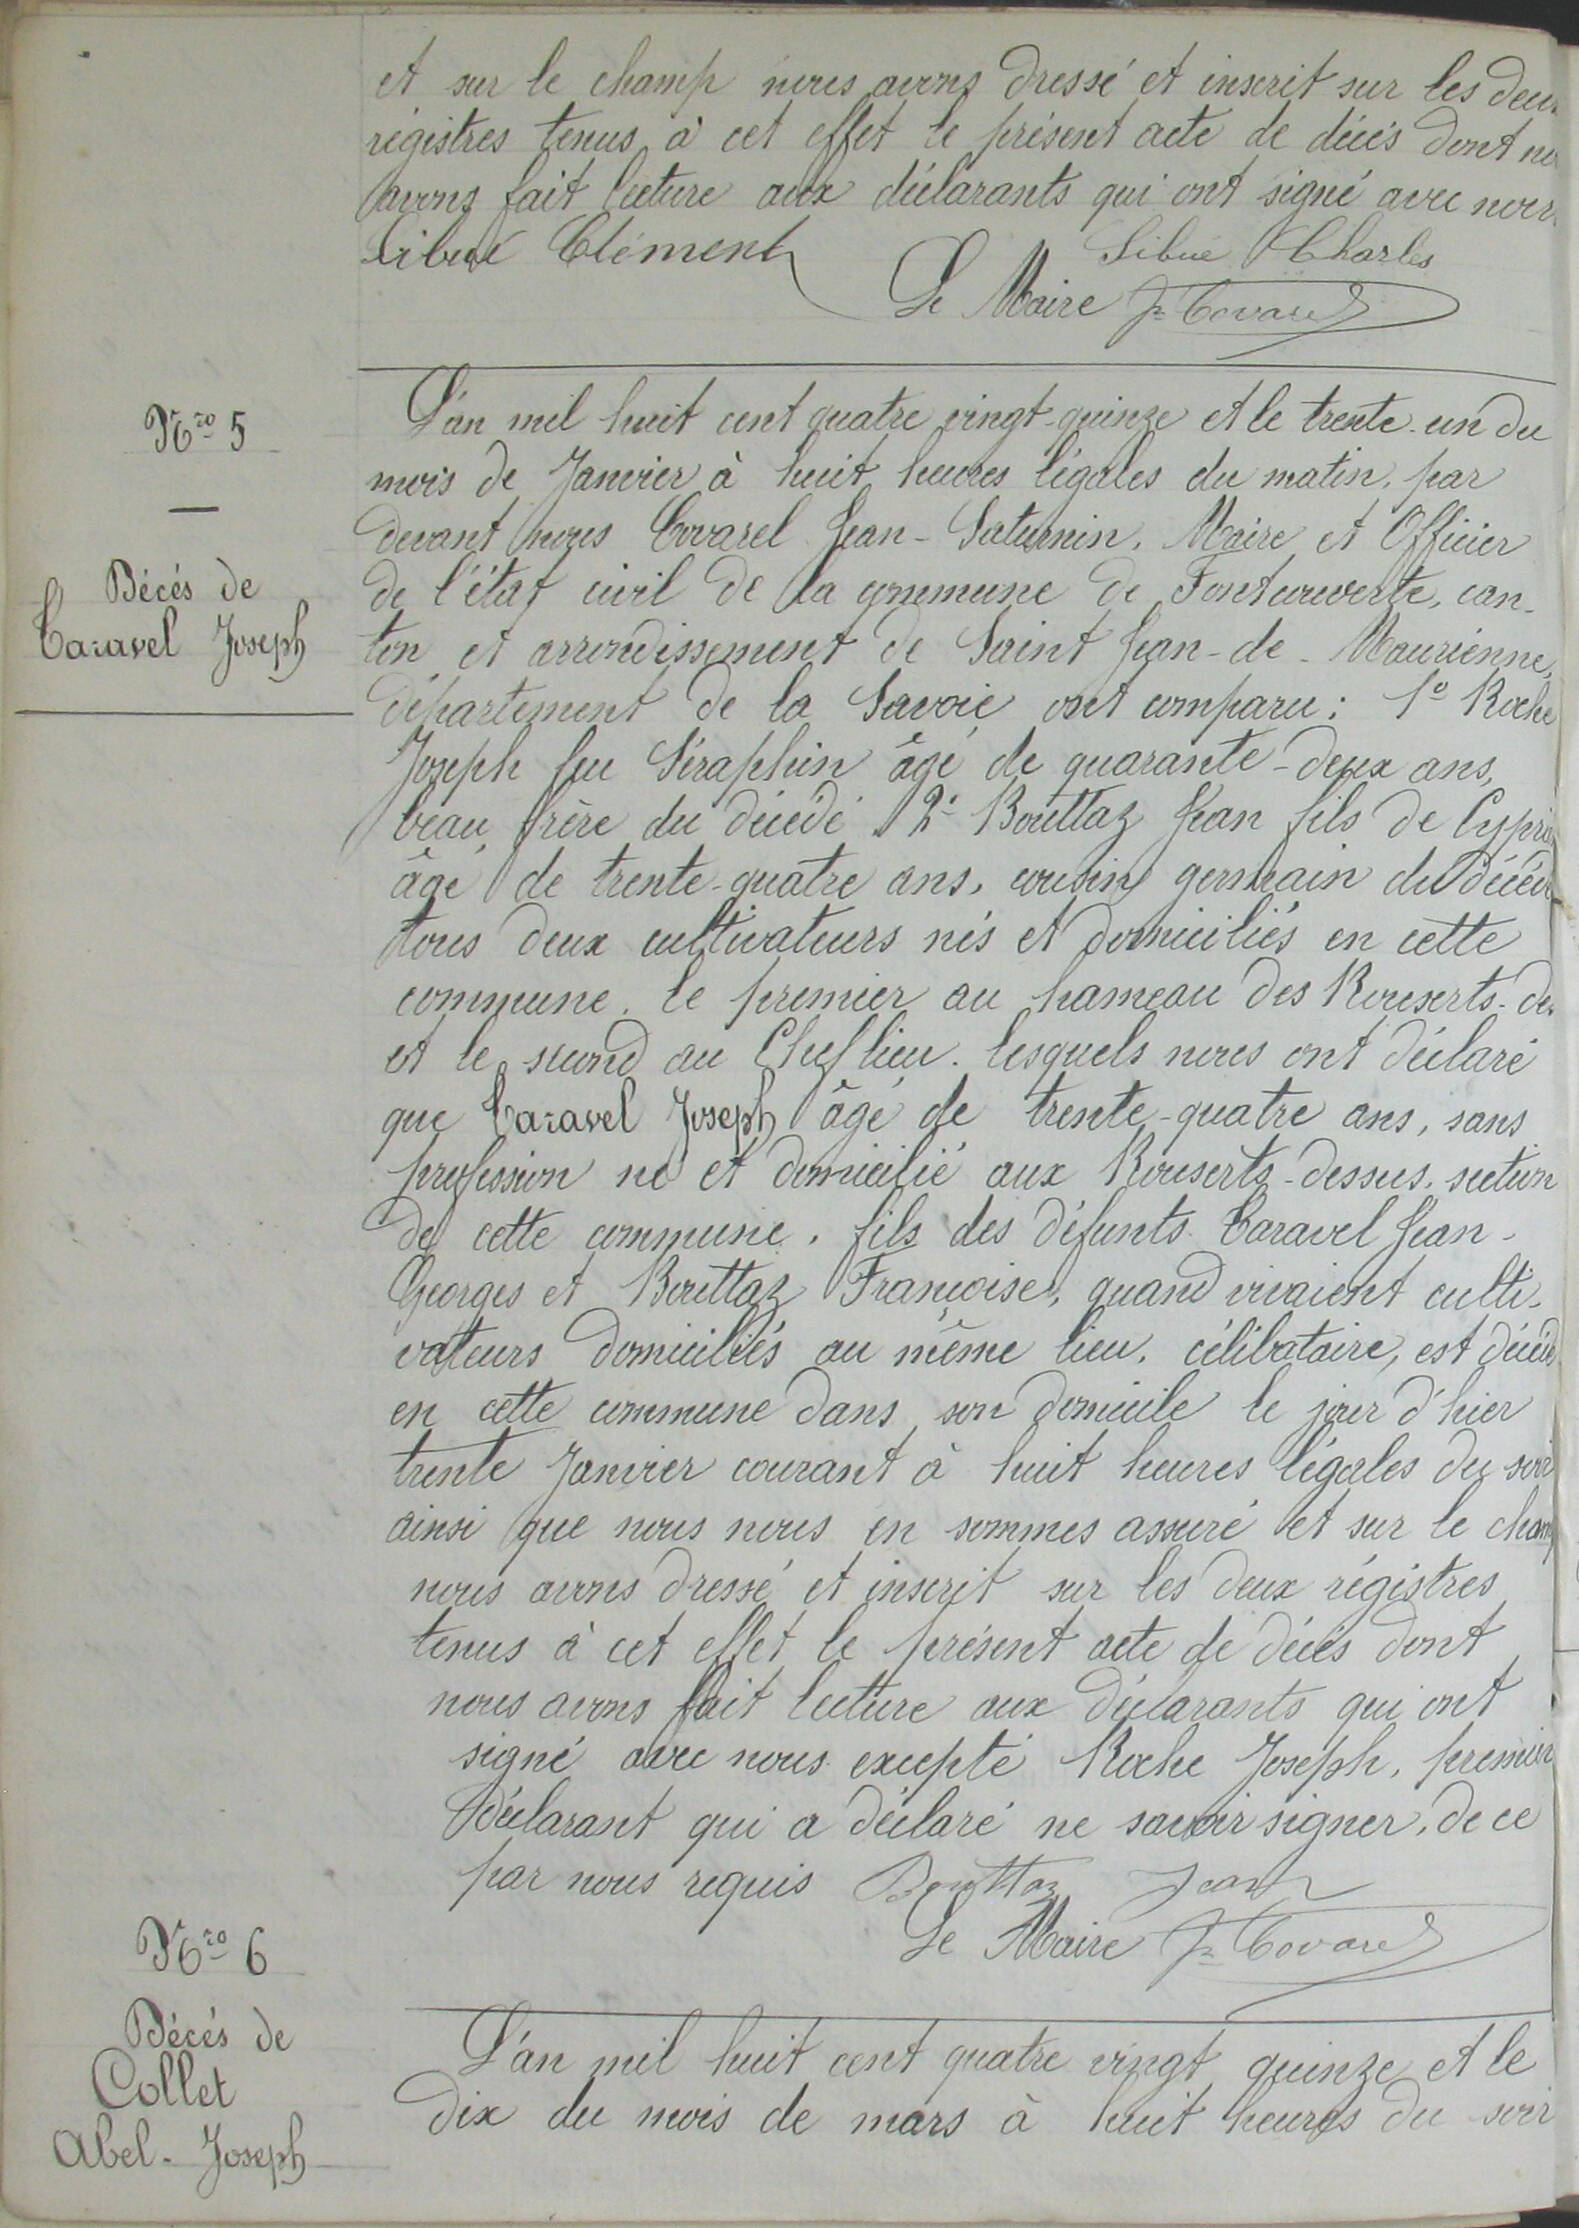 et sur le champ nous avons dressé et inscrit sur les deux
régistres tenus à cet effet le présent acte de décés dont no
avons fait lecture aux déclarants qui ont signé avec nous
Sibué Clément Sibué Charles
Le Maire Jn Covarel
Nro 5
Décés de
Caravel Joseph
L'an mil huit cent quatre vingt-quinze et le trente-un du
mois de Janvier à huit heures légales du matin, par
devant nous Covarel Jean-Saturnin, Maire et Officier
de l'état civil de la commune de Fontcouverte, can-
ton et arrondissement de Saint Jean-de-Maurienne,
département de la Savoie ont comparu : 1º Roche
Joseph feu Séraphin âgé de quarante-deux ans,
beau frère du décédé 2º Bouttaz Jean fils de Cypri
âgé de trente-quatre ans, cousin germain du décéd
tous deux cultivateurs nés et domiciliés en cette
commune, le premier au hameau des Rouserts-des
et le second au Chef lieu. lesquels nous ont déclaré
que Caravel Joseph âgé de trente-quatre ans, sans
profession né et domicilié aux Rouserts-dessus, section
de cette commune, fils des défunts Caravel Jean-
Georges et Bouttaz Françoise, quand vivaient culti-
vateurs domiciliés au même lieu, célibataire, est décédé
en cette commune dans son domicile le jour d'hier
trente Janvier courant à huit heures légales du soir
ainsi que nous nous en sommes assuré et sur le champ
nous avons dressé et inscrit sur les deux régistres
tenus à cet effet le présent acte de décés dont
nous avons fait lecture aux déclarants qui ont
signé avec nous excepté Roche Joseph, premier
déclarant qui a déclaré ne savoir signer, de ce
par nous requis Bouttaz Jean
Le Maire Jn Covarel
Nro 6
Décés de
Collet
Abel-Joseph
L'an mil huit cent quatre vingt quinze et le
dix du mois de mars à huit heures du soir